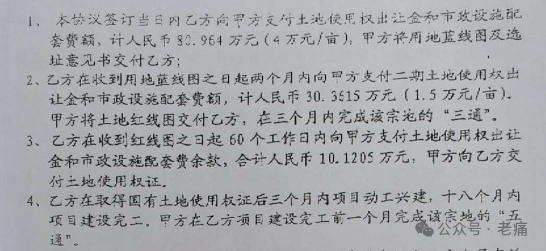 1、本协议签订当日内乙方向甲方支付土地使用权出让金和市政设施配
套费额，计人民币 80.964 万元（4 万元/亩），甲方将用地蓝线图及选
址意见书交付乙方；
2、乙方在收到用地蓝线图之日起两个月内向甲方支付二期土地使用权出
让金和市政设施配套费额，计人民币 30.3615 万元（1.5 万元/亩）。
甲方将土地红线图交付乙方，在三个月内完成该宗地的“三通”。
3、乙方在收到红线图之日起 60 个工作日内向甲方支付土地使用权出让
金和市政设施配套费余款，合计人民币 10.1205 万元，甲方向乙方交
付土地使用权证。
4、乙方在取得国有土地使用权证后三个月内项目动工兴建，十八个月内
项目建设完工。甲方在乙方项目建设完工前一个月完成该宗地的“五
通”。
公众号·老痛